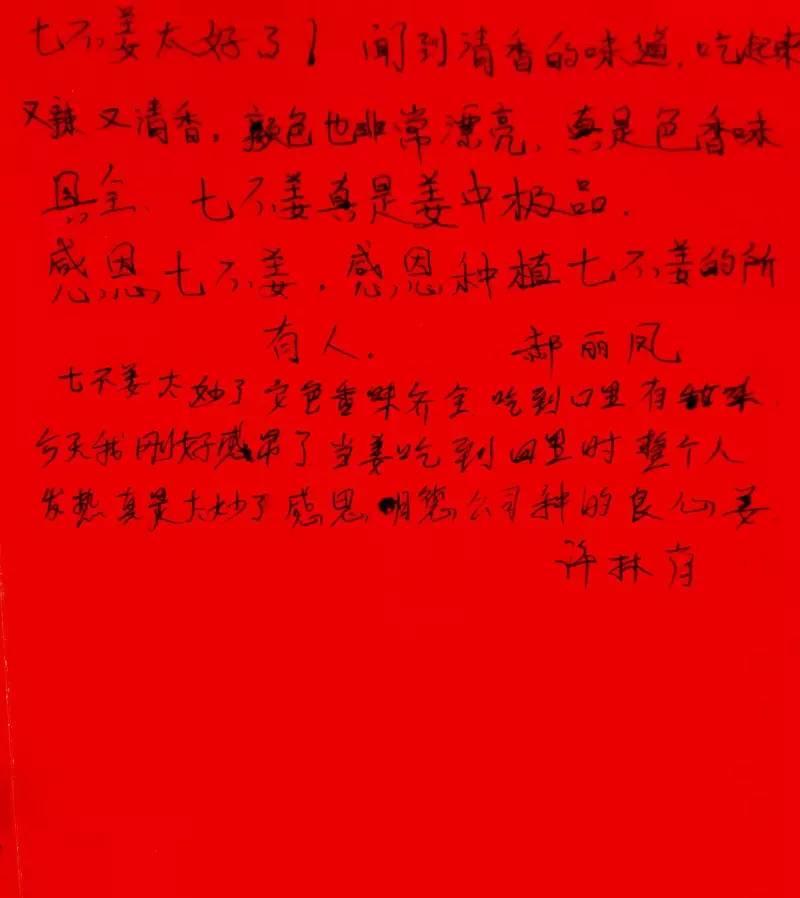 七不姜太好了！闻到清香的味道，吃起来
又辣又清香，颜色也非常漂亮，真是色香味
具全、七不姜真是姜中极品．
感恩七不姜，感恩种植七不姜的所
有人．郝丽凤
七不姜太妙了 色香味齐全 吃到口里有甜味．
今天我刚好感冒了当姜吃到口里时整个人
发热真是太妙了感恩明 公司种的良心姜．
许林有